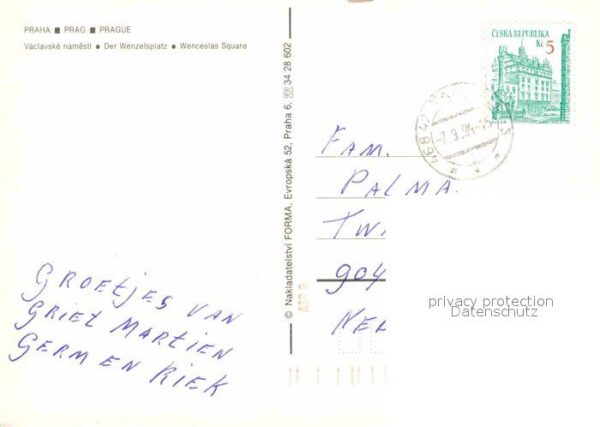 PRAHA ■ PRAG ■ PRAGUE
Václavské náměstí ● Der Wenzelsplatz ● Wenceslas Square
GROETJES VAN
GRIET MARTIEN
GERM EN RIEK
© Nakladatelství FORMA, Evropská 52, Praha 6, ☎ 34 28 602
ČESKÁ REPUBLIKA
Kč 5
-7.9.94-
FAM.
PALMA.
TW.
904
NE
privacy protection
Datenschutz